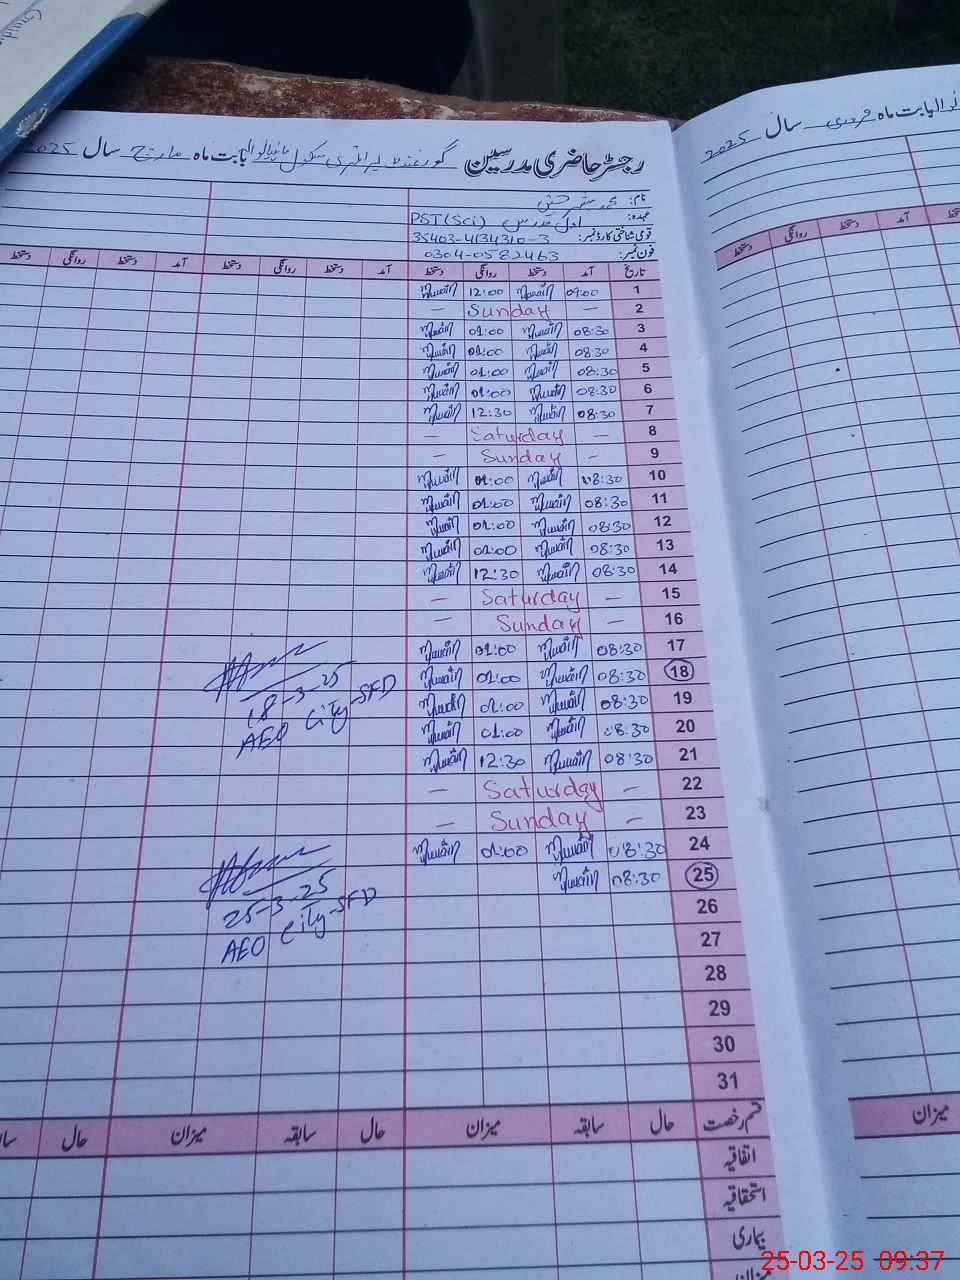 رجسٹر حاضری مدرسین گورنمنٹ پرائمری سکول بابت ماہ مارچ سال 2025
نام:
عہدہ: PST (Sci)
قومی شناختی کارڈ نمبر: 35403-4134310-3
فون نمبر: 0304-0582463
تاریخ آمد دستخط روانگی دستخط آمد دستخط روانگی دستخط آمد دستخط روانگی دستخط
1 09:00 12:00
2 — Sunday —
3 08:30 01:00
4 08:30 01:00
5 08:30 01:00
6 08:30 01:00
7 08:30 12:30
8 — Saturday —
9 — Sunday —
10 08:30 01:00
11 08:30 01:00
12 08:30 01:00
13 08:30 01:00
14 08:30 12:30
15 — Saturday —
16 — Sunday —
17 08:30 01:00
18 08:30 01:00
19 08:30 01:00
20 08:30 01:00
21 08:30 12:30
22 — Saturday —
23 — Sunday —
24 08:30 01:00
25 08:30
26
27
28
29
30
31
18-3-25
AEO City-SFD
25-3-25
AEO City-SFD
قسم رخصت حال سابقہ میزان حال سابقہ میزان حال
اتفاقیہ
استحقاقیہ
بیماری
میزان
بابت ماہ فروری سال 2025
آمد روانگی دستخط
میزان
25-03-25 09:37